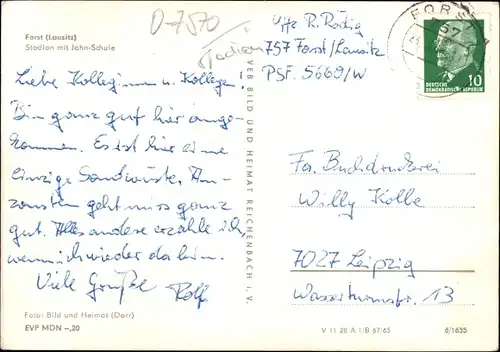 Forst (Lausitz)
Stadion mit Jahn-Schule
D-7570
Stadion
Liebe Kolleginnen u. Kollegen!
Bin ganz gut hier ange-
kommen. Es ist hier eine
einzige Sandwüste. An-
sonsten geht uns ganz
gut. Alles andere erzähle ich,
wenn ich wieder da bin.
Viele Grüße Rolf
Foto: Bild und Heimat (Darr)
EVP MDN –,20
VEB BILD UND HEIMAT REICHENBACH i. V.
Uffz R. Rödig
757 Forst/Lausitz
PSF. 5669/W
FORST
57
10
DEUTSCHE
DEMOKRATISCHE REPUBLIK
Fa. Buchdruckerei
Willy Kolbe
7027 Leipzig
Wasserturmstr. 13
V 11 28 A 1/B 67/65
6/1635